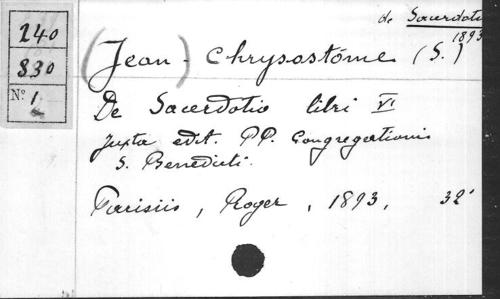 240
830
N° 1
de Sacerdotio
1893
(Jean) Chrysostôme (S.)
De Sacerdotio libri VI
juxta edit. PP. Congregationis
S. Benedicti.
Parisiis, Roger, 1893, 32°